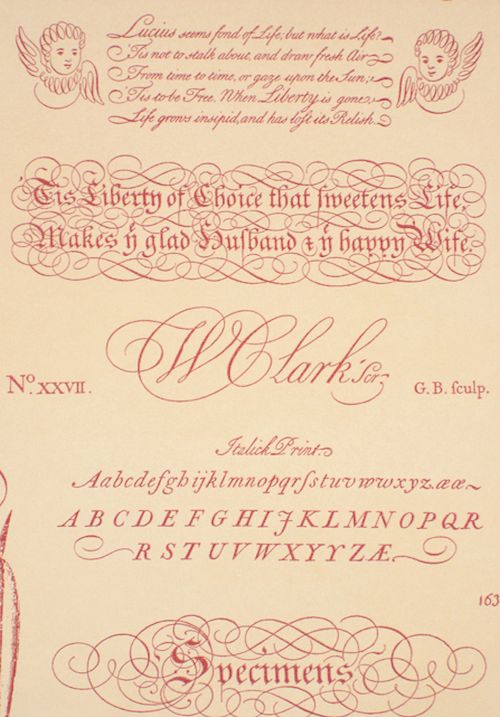 Lucius seems fond of Life; but what is Life?
'Tis not to stalk about, and draw fresh Air
From time to time, or gaze upon the Sun;
'Tis to be Free. When Liberty is gone,
Life grows insipid, and has lost its Relish.
'Tis Liberty of Choice that ſweetens Life,
Makes ÿ glad Huſband & ÿ happy Wife.
W Clark Scr.
No. XXVII.
G. B. ſculp.
Italick Print.
Aabcdefghijklmnopqrſstuvwwxyz.ææ
ABCDEFGHIJKLMNOPQR
RSTUVWXYYZÆ.
163
Specimens